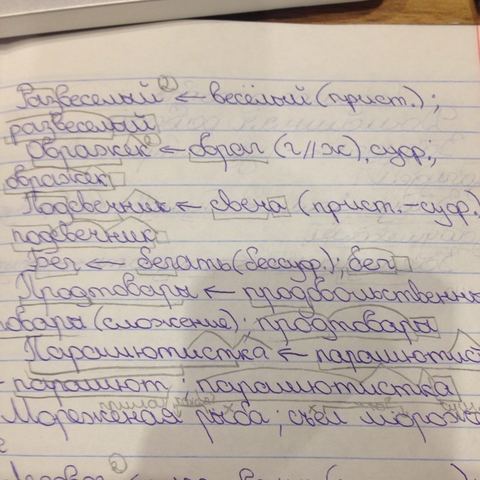 Развеселый² ← весёлый (прист.);
развеселый
Овражек² ← овраг (г//ж), суф.;
овражек
Подсвечник ← свеча (прист.-суф.)
подсвечник
Бег ← бегать (бессуф.); бег
Продтовары ← продовольственны
овары (сложение); продтовары
Парашютистка ← парашютис
- парашют; парашютистка
Мороженая рыба; съем морож